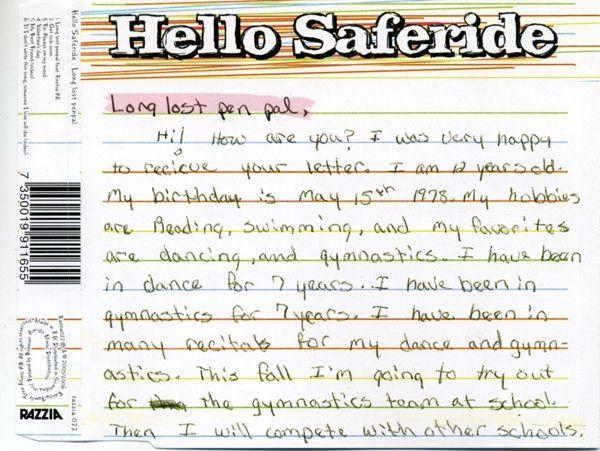 Hello Saferide
Long lost pen pal,
Hi! How are you? I was very happy
to recieve your letter. I am 12 years old.
My birthday is May 15th 1978. My hobbies
are Reading, swimming, and my favorites
are dancing, and gymnastics. I have been
in dance for 7 years. I have been in
gymnastics for 7 years. I have been in
many recitals for my dance and gymn-
astics. This fall I'm going to try out
for the gymnastics team at school.
Then I will compete with other schools.
Hello Saferide Long lost penpal
1. Long lost penpal feat
2. Get sick soon
4. Valentine's day
5. My Best Friend
6. If I don't write this song, someone I love will die
7 350019 911655
RAZZIA
razzia 022